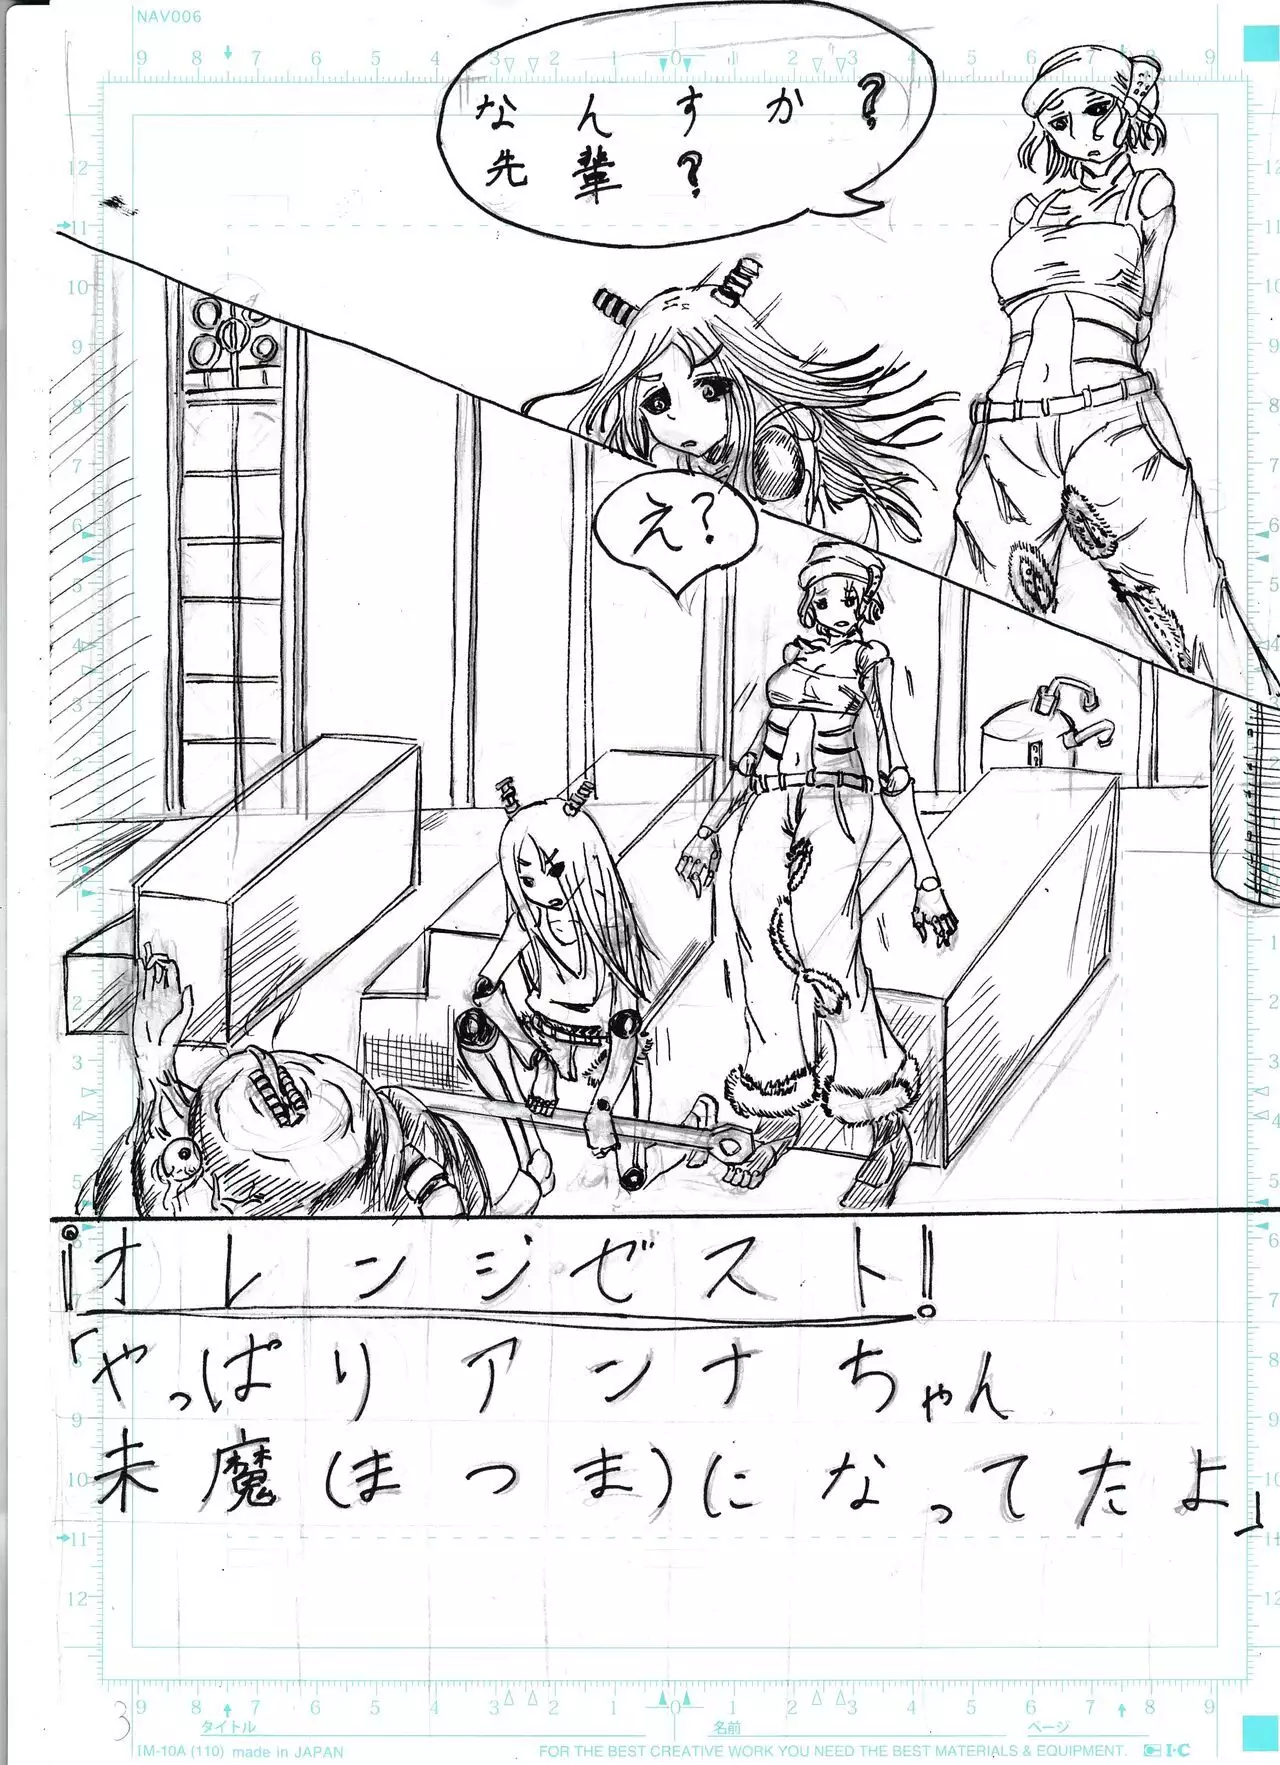 NAV006
なんすか?
先輩?
え?
¡オレンジゼスト!
「やっぱりアンナちゃん
未魔(まつま)になってたよ」
3
タイトル
名前
ページ
IM-10A (110) made in JAPAN
FOR THE BEST CREATIVE WORK YOU NEED THE BEST MATERIALS & EQUIPMENT.
I·C